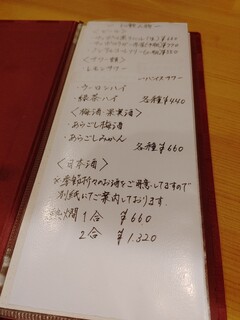 〈サワー類〉
・レモンサワー
・ハイビスサワー
・ウーロンハイ
・緑茶ハイ 各種¥440
〈梅酒・果実酒〉
・あらごし梅酒
・あらごしみかん 各種¥660
〈日本酒〉
※季節折々のお酒をご用意してますので
別紙にてご案内しております。
熱燗 1合 ¥660
2合 ¥1,320